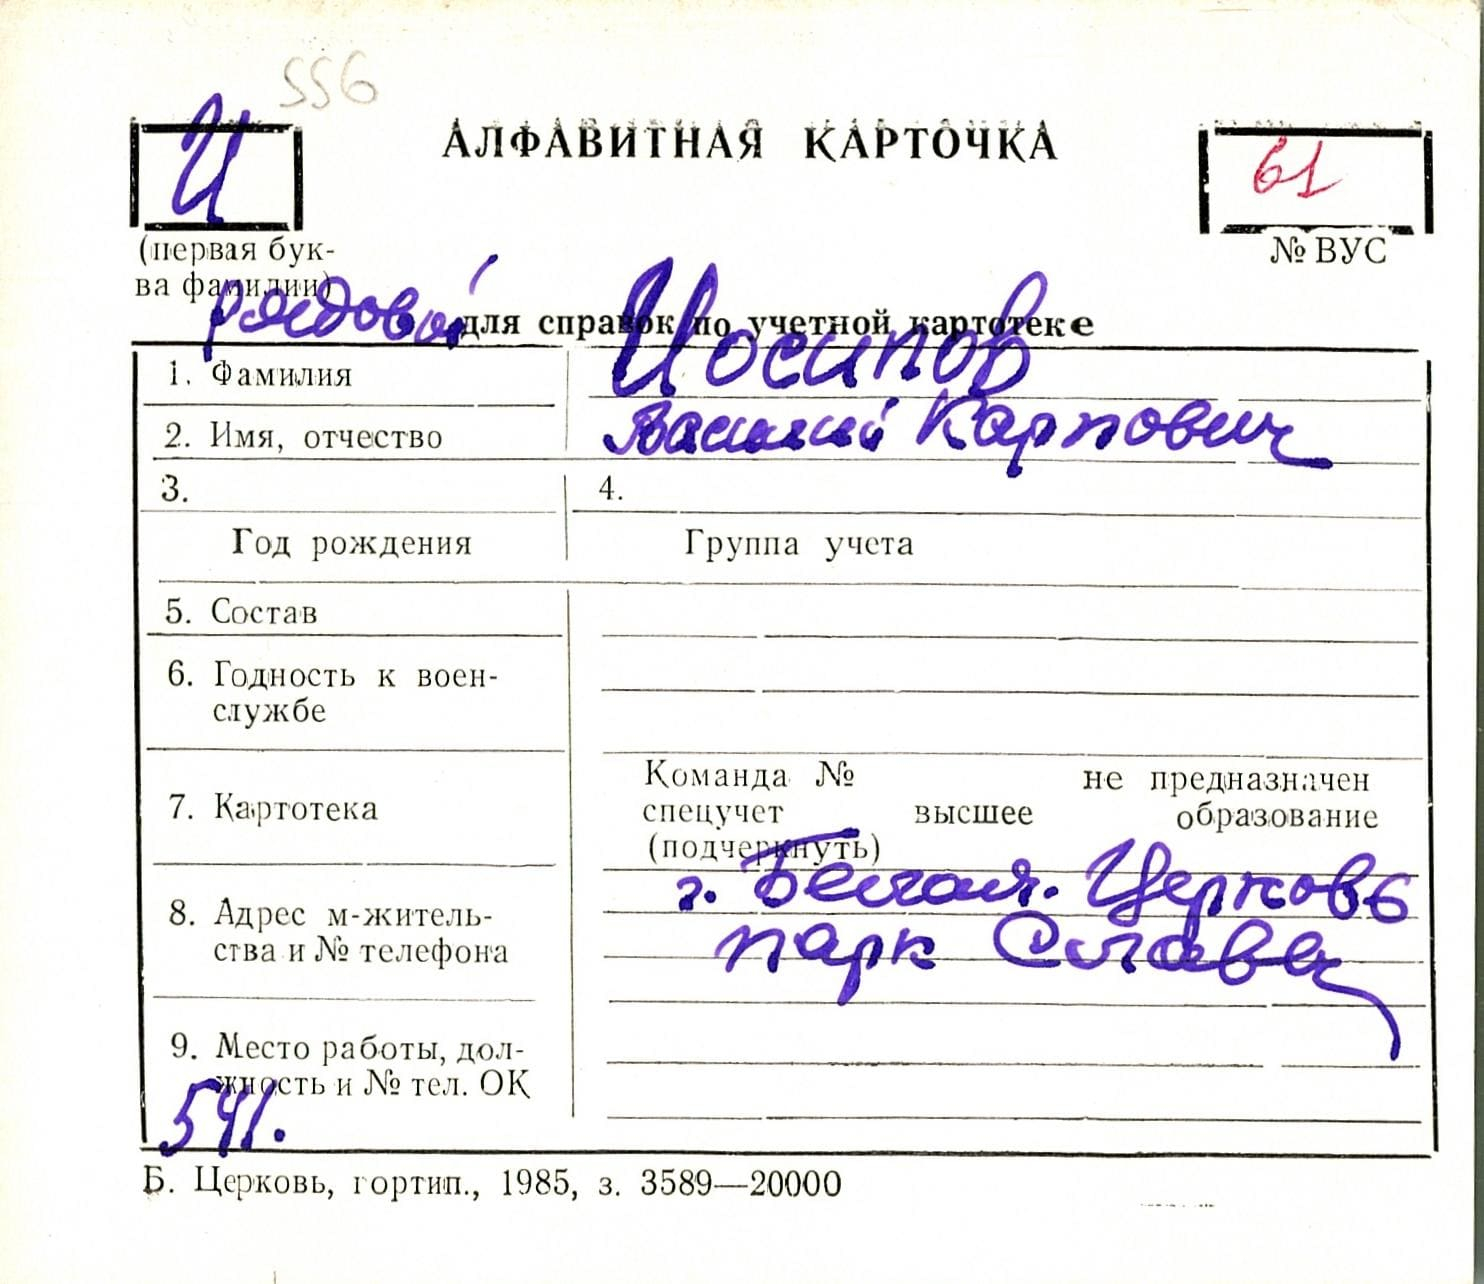 556
И
АЛФАВИТНАЯ КАРТОЧКА
61
(первая бук-
ва фамилии)
№ ВУС
рядовой
для справок по учетной картотеке
1. Фамилия
Иосипов
2. Имя, отчество
Василий Карпович
3.
4.
Год рождения
Группа учета
5. Состав
6. Годность к воен-
службе
7. Картотека
Команда № не предназначен
спецучет высшее образование
(подчеркнуть)
8. Адрес м-житель-
ства и № телефона
г. Белая. Церковь
парк Славы
9. Место работы, дол-
жность и № тел. ОК
541.
Б. Церковь, гортип., 1985, з. 3589—20000